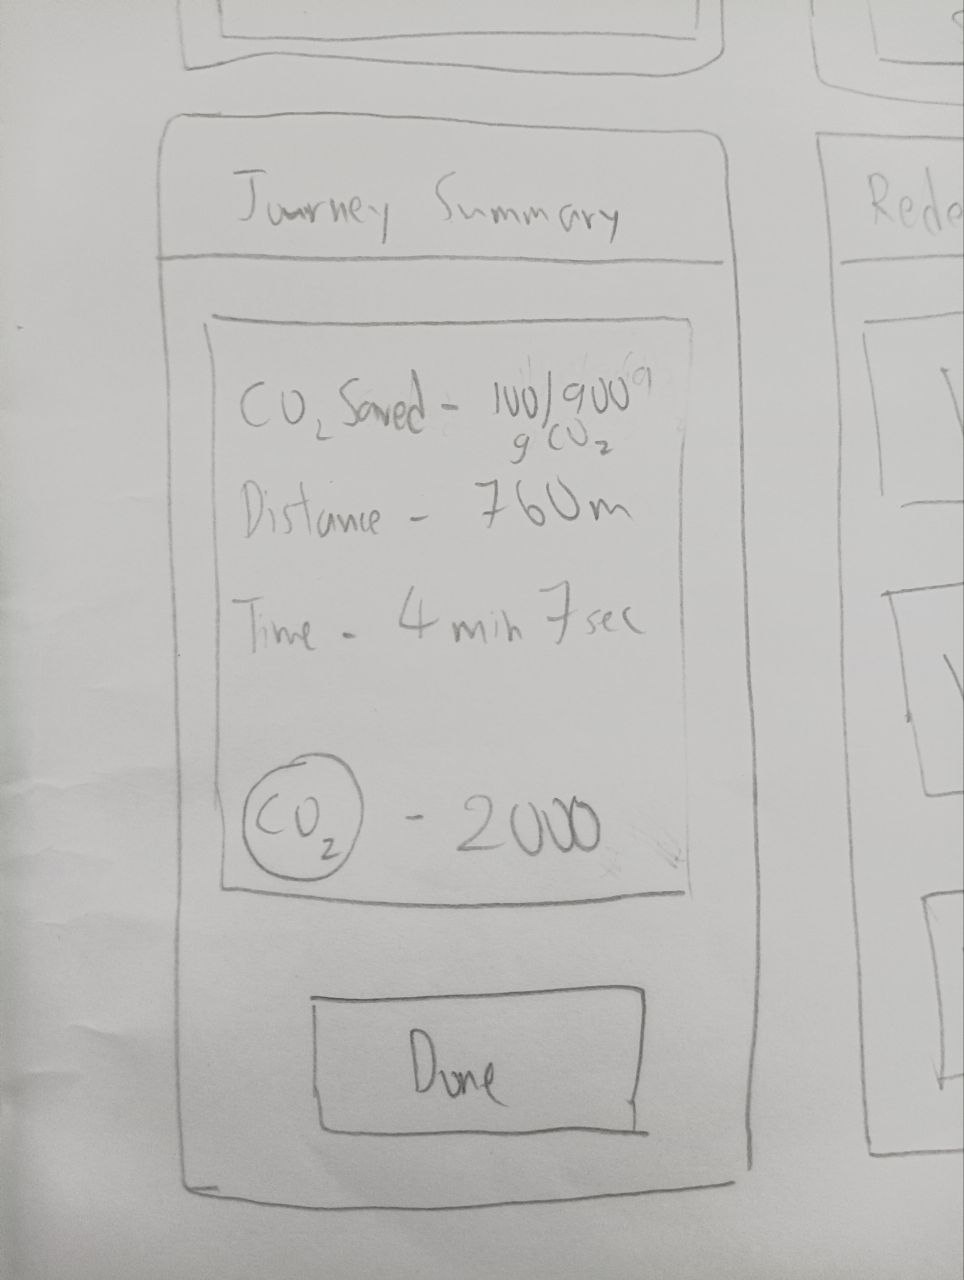 Journey Summary
CO₂ Saved - 100/900
g CO₂
Distance - 760m
Time - 4 min 7 sec
CO₂ - 2000
Done